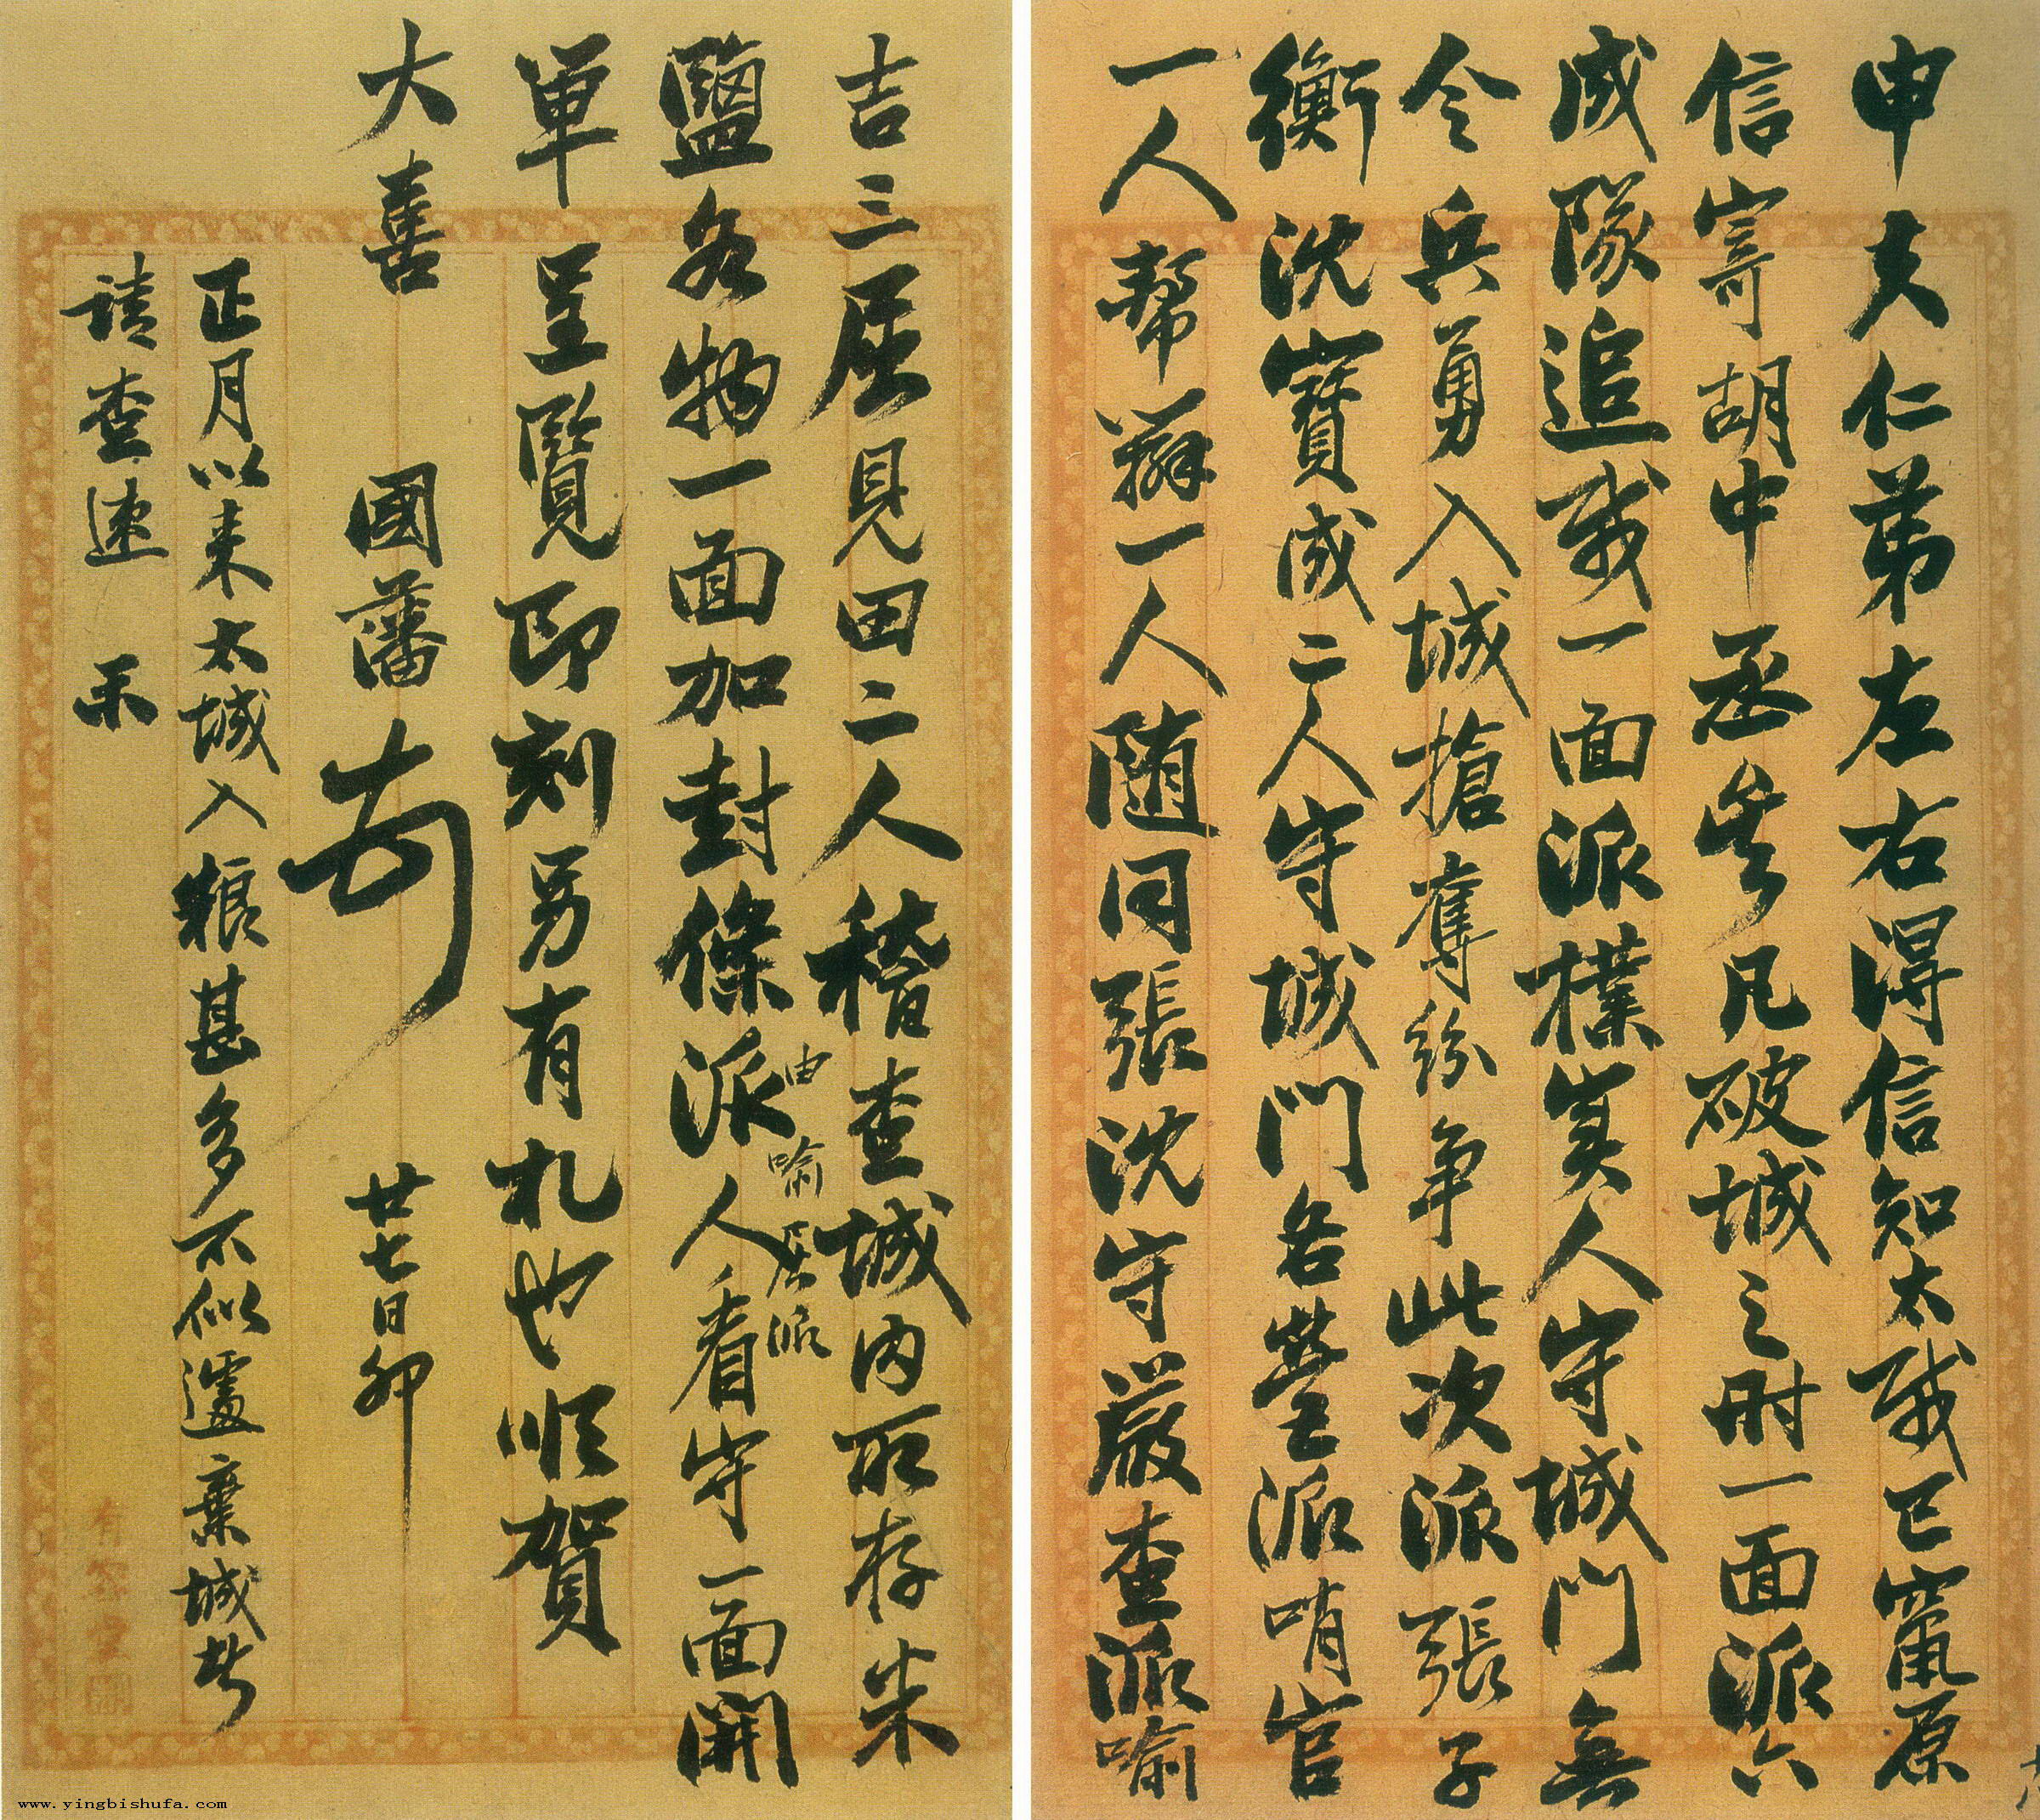 申夫仁弟左右得信知太賊已竄原
信寄胡中丞矣凡破城之時一面派六
成隊追賊一面派樸實人守城門無
令兵勇入城搶奪紛爭此次派張子
衡沈寶成二人守城門各營派哨官
一人幫辦一人随同張沈守嚴查派喻
吉三屈見田二人稽查城内所存米
鹽各物一面加封條派人看守一面開
由喻屈派
單呈覽即刻另有札也順賀
大喜
國藩
廿七日卯
正月以来太城入粮甚多不似遽棄城者
請查速
有容堂
www.yingbishufa.com